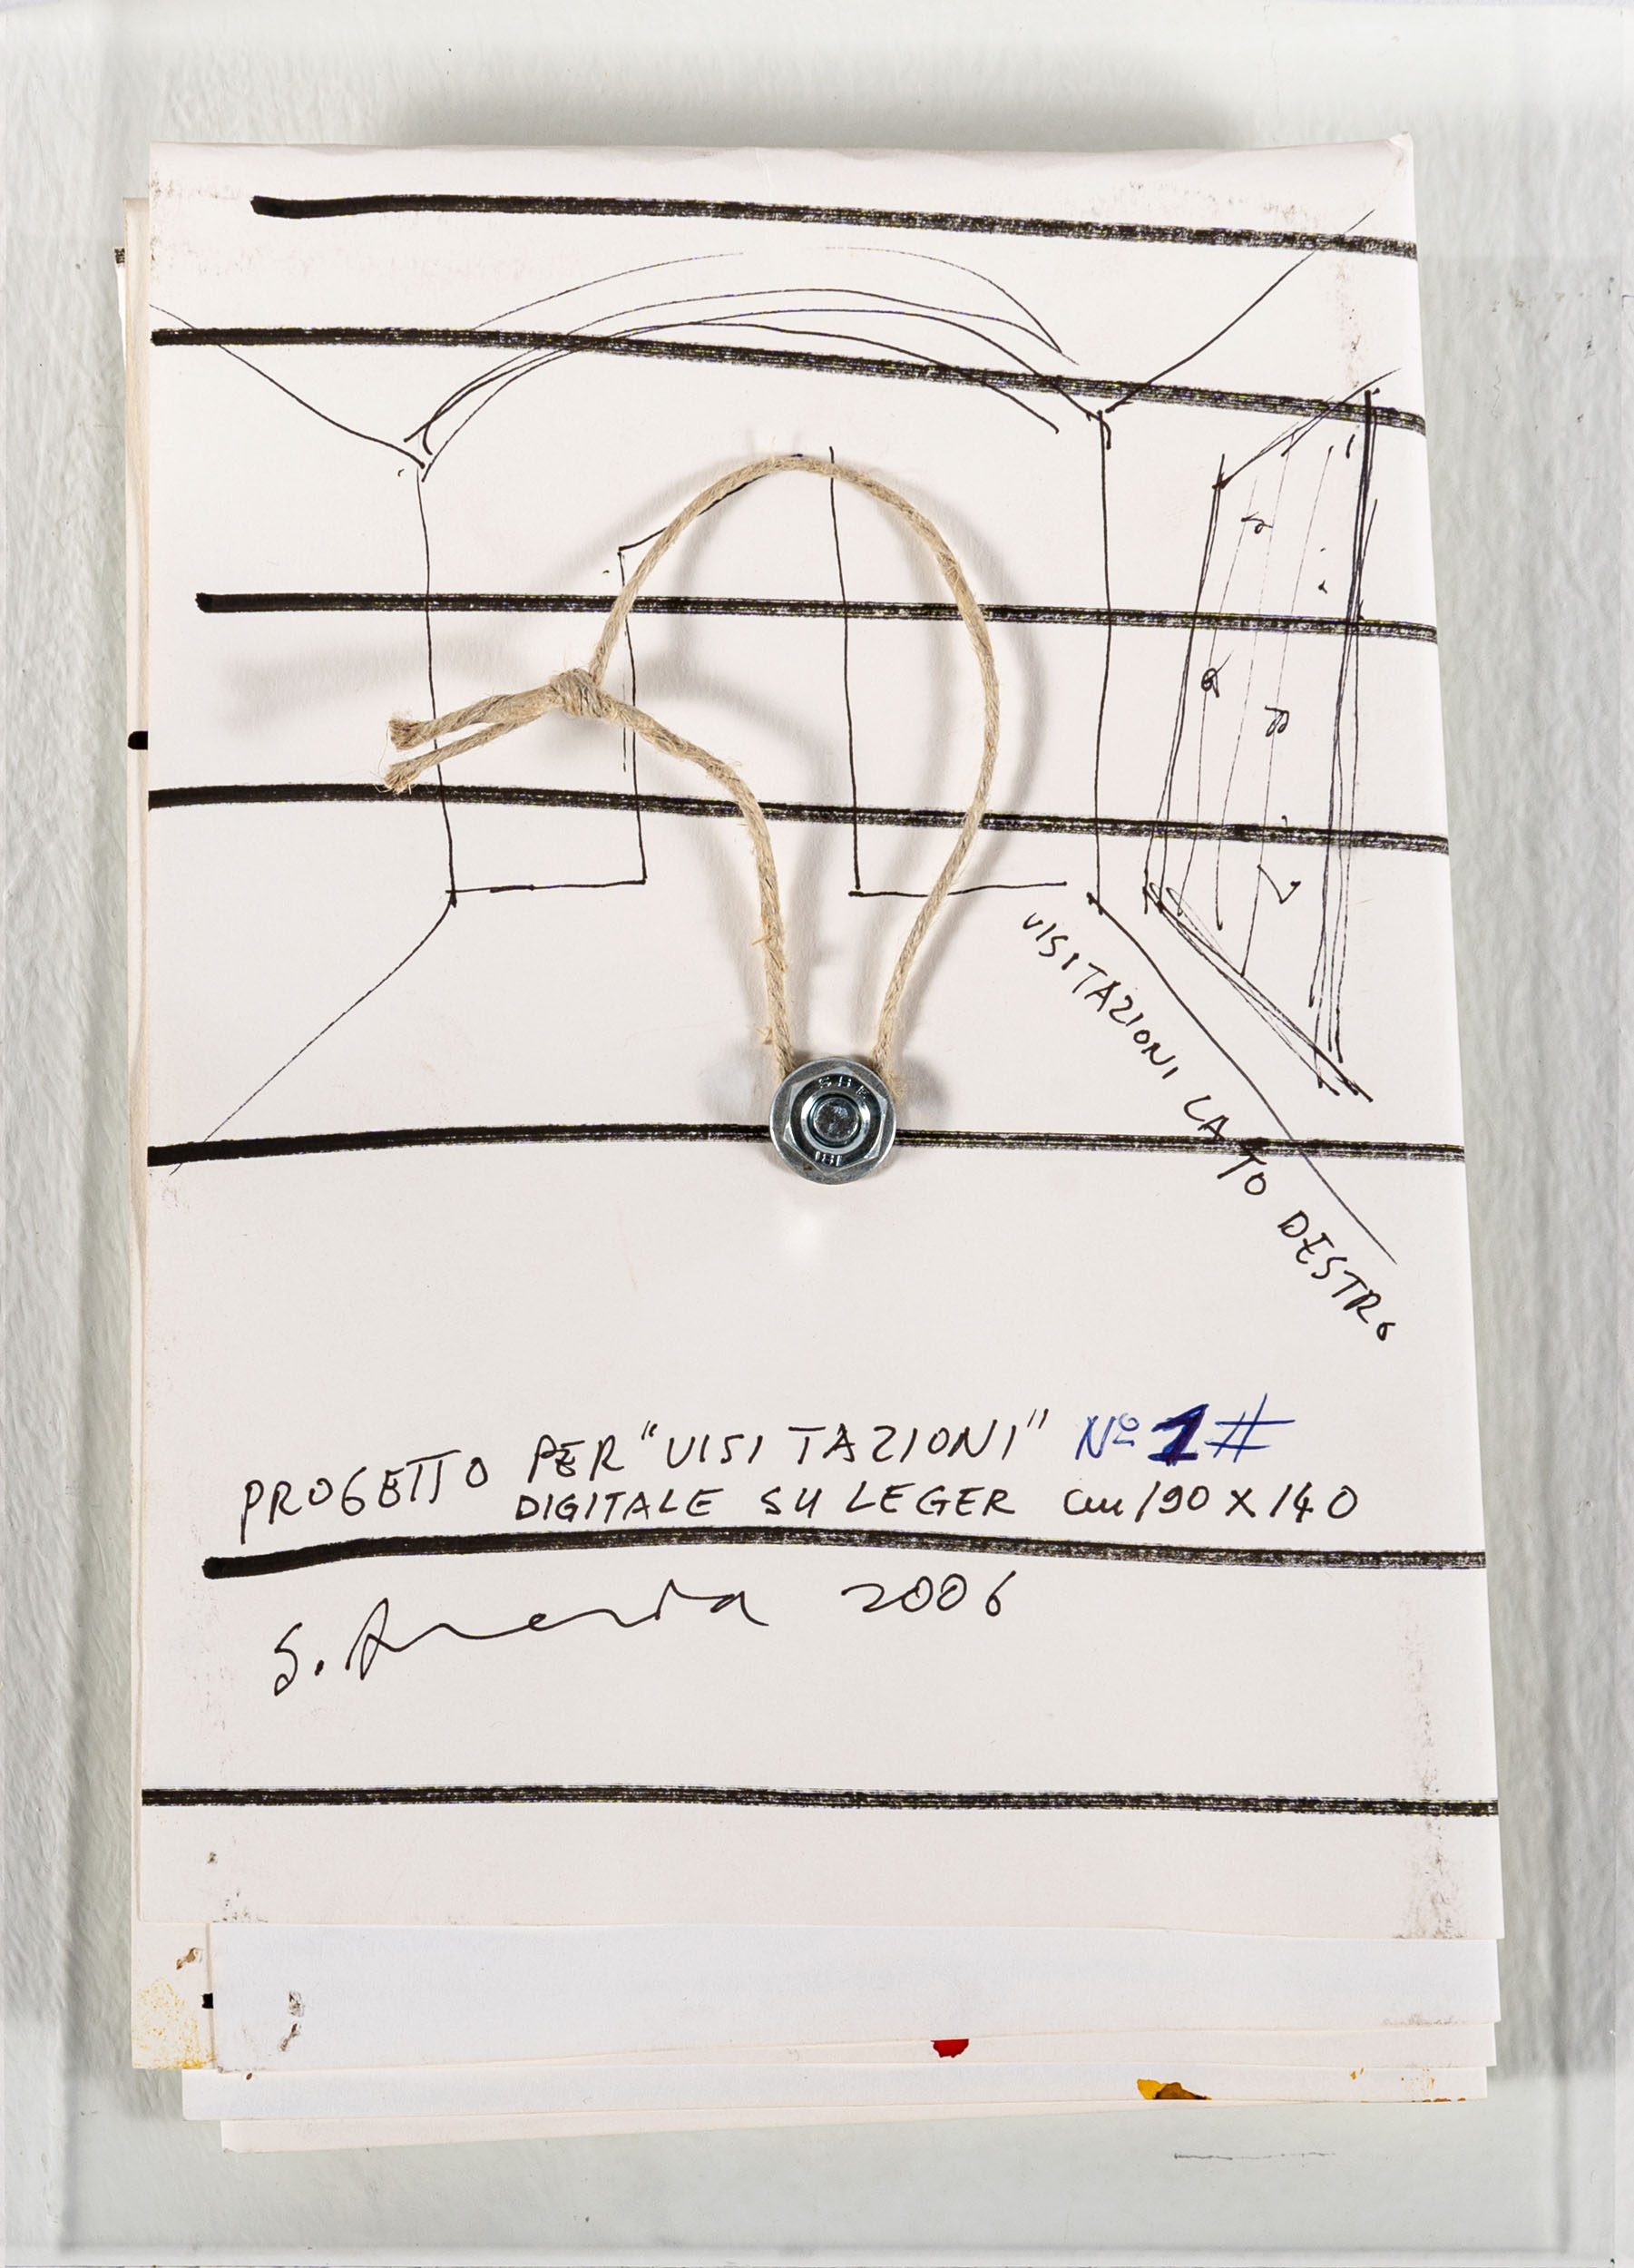 VISITAZIONI LATO DESTRO
PROGETTO PER "VISITAZIONI" Nº 1#
DIGITALE SU LEGER cm 190 X 140
S. 2006